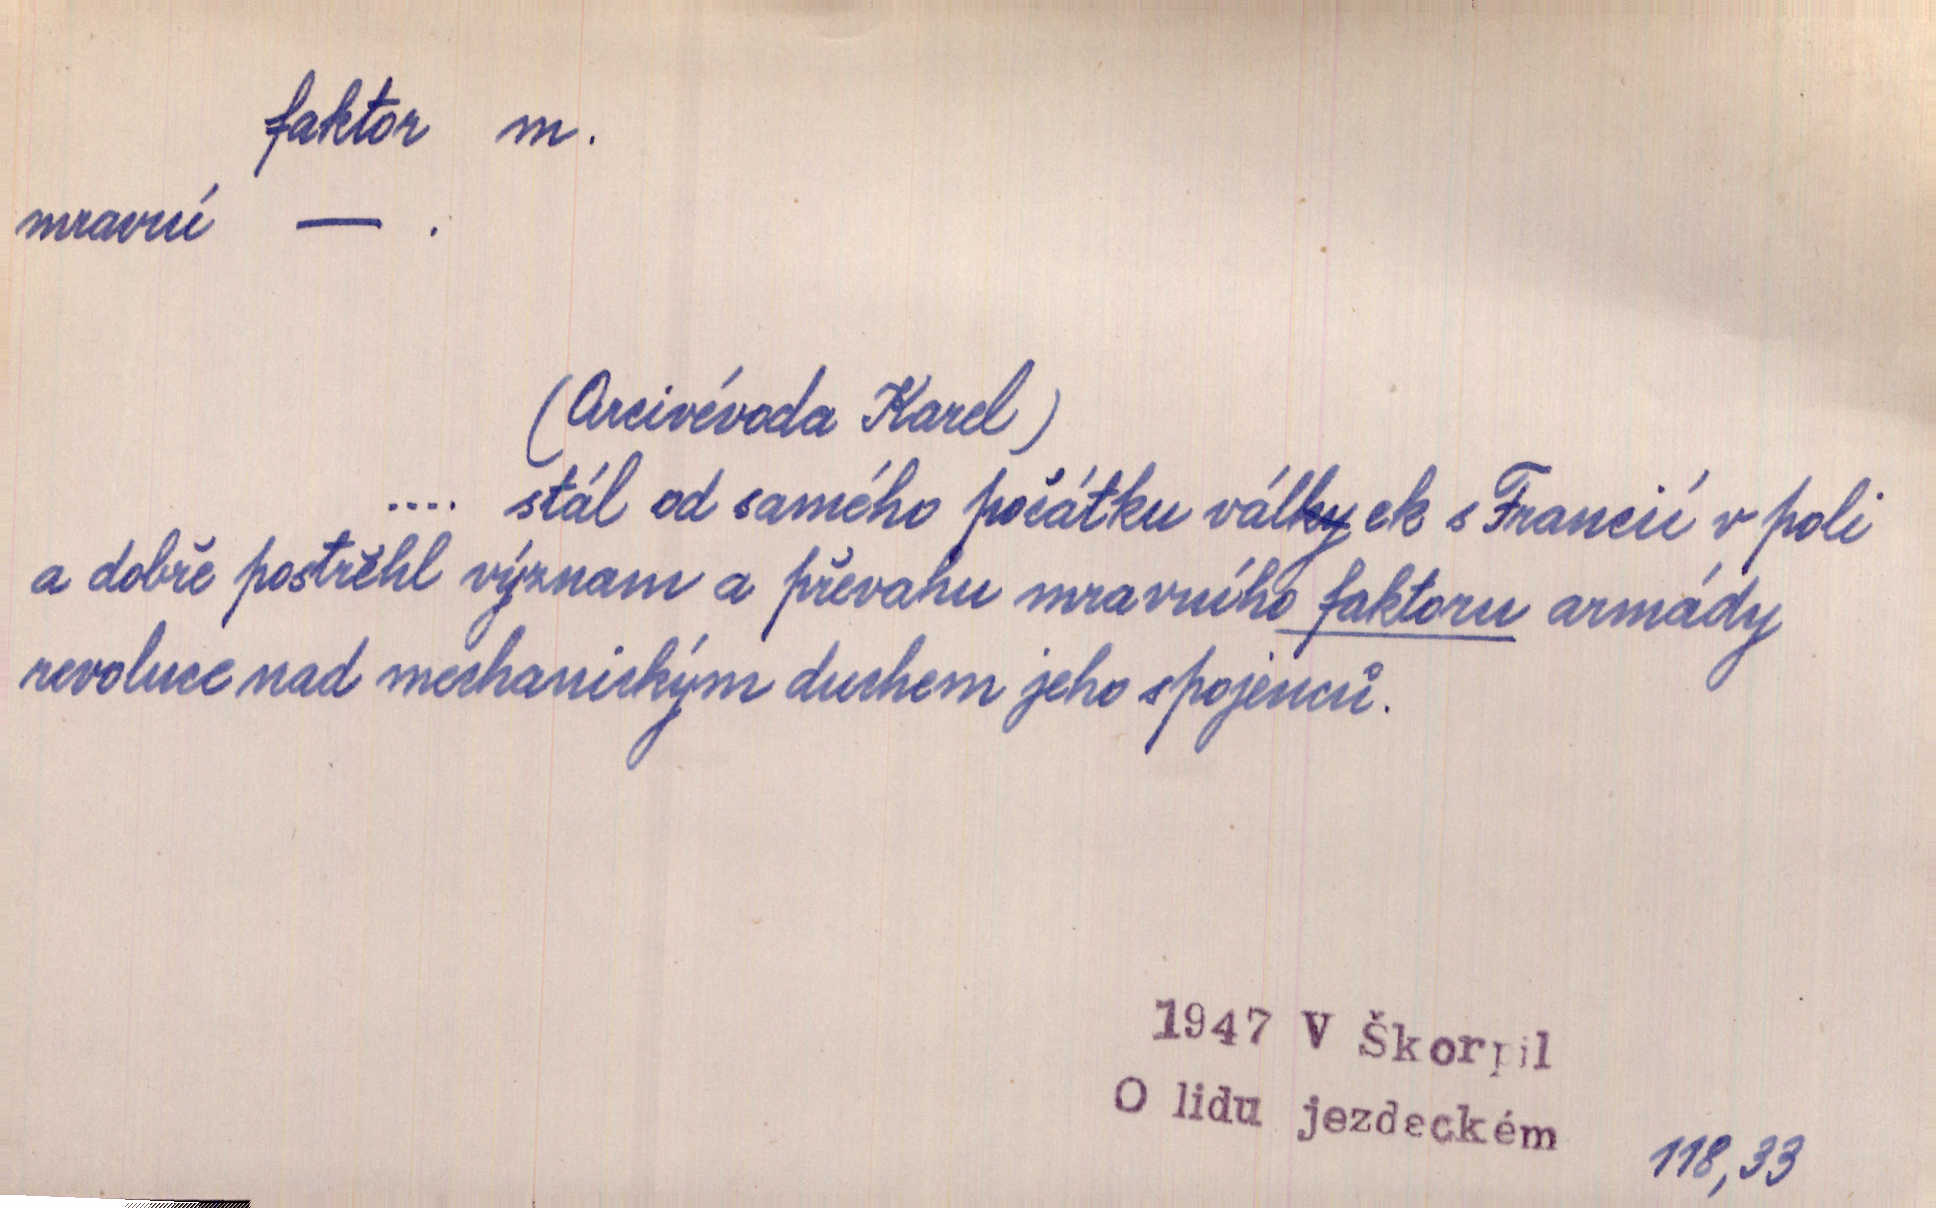 faktor m.
mravní — .
(Arcivévoda Karel)
.... stál od samého počátku válkyek s Francií v poli
a dobře postřehl význam a převahu mravního faktoru armády
revoluce nad mechanickým duchem jeho spojenců.
1947 V Škorpil
O lidu jezdeckém
118,33